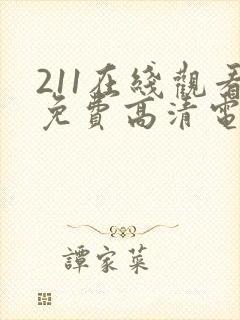 211在綫觀看
免費高清電
譚家菜